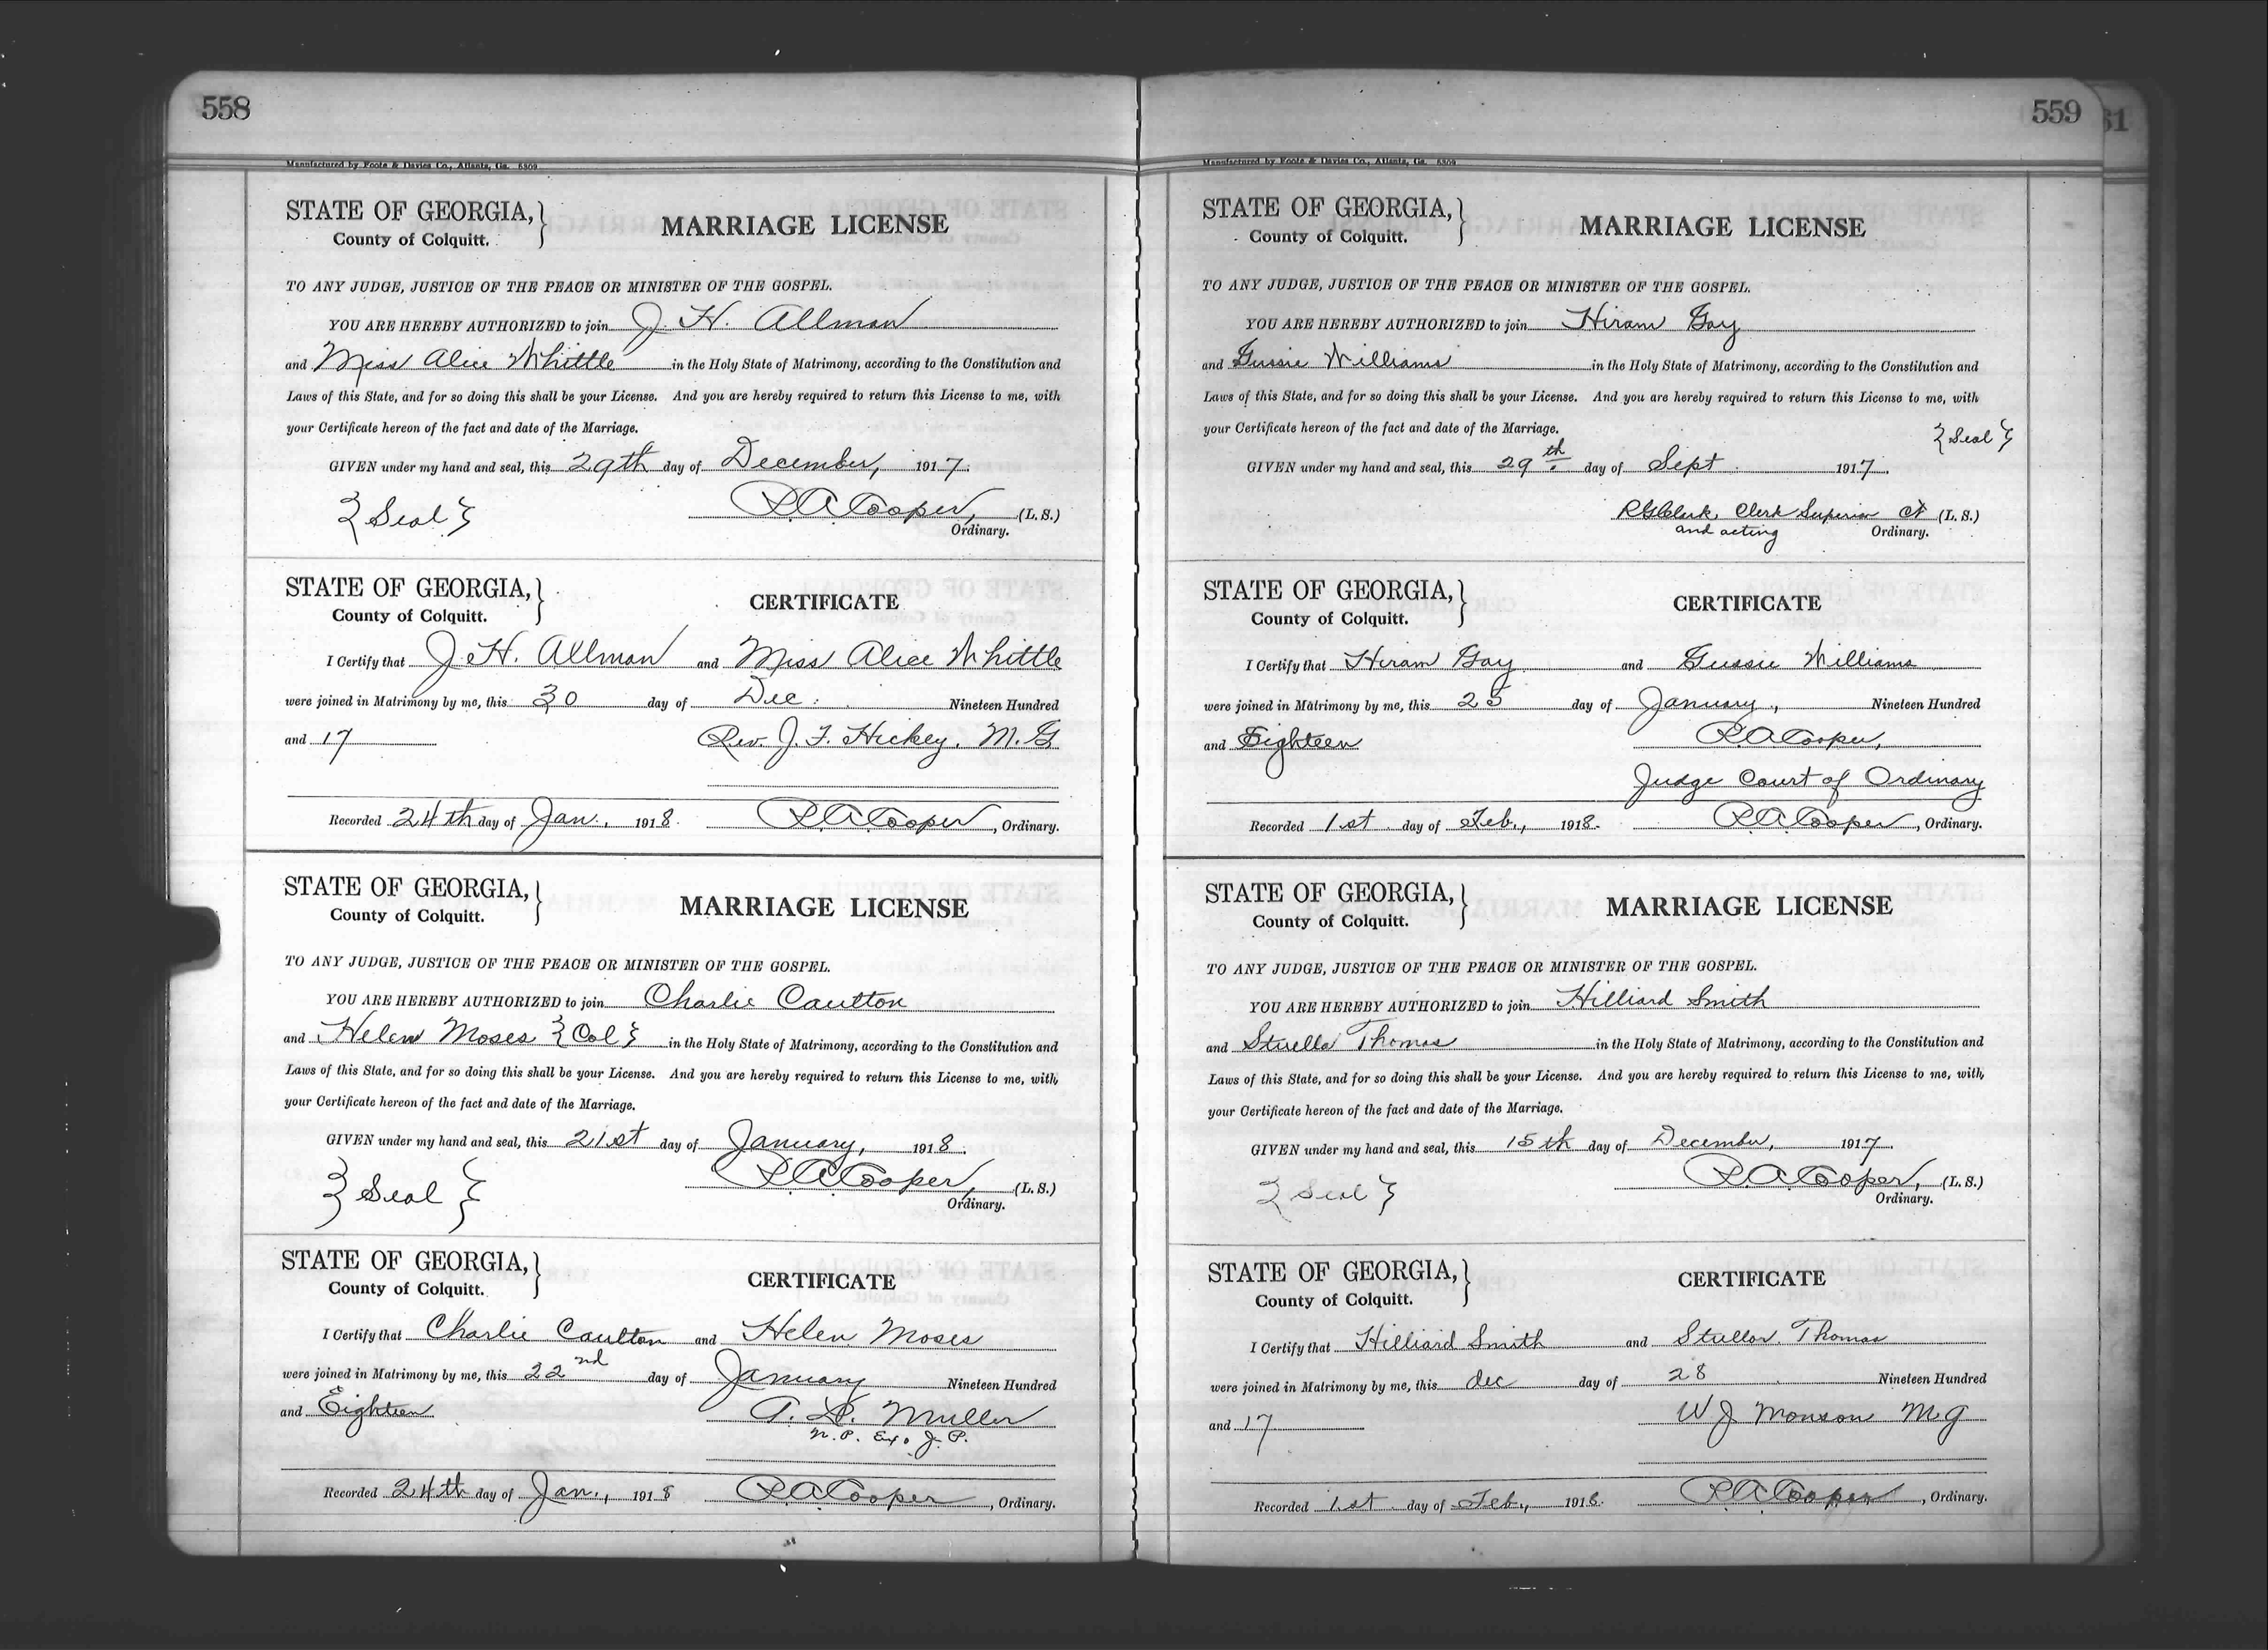 558
Manufactured by Foote & Davies Co., Atlanta, Ga. 5309
STATE OF GEORGIA,
County of Colquitt.
MARRIAGE LICENSE
TO ANY JUDGE, JUSTICE OF THE PEACE OR MINISTER OF THE GOSPEL.
YOU ARE HEREBY AUTHORIZED to join J. H. Allman
and Miss Alice Whittle in the Holy State of Matrimony, according to the Constitution and
Laws of this State, and for so doing this shall be your License. And you are hereby required to return this License to me, with
your Certificate hereon of the fact and date of the Marriage.
GIVEN under my hand and seal, this 29th day of December, 1917.
{Seal} R.A. Cooper, (L. S.)
Ordinary.
STATE OF GEORGIA,
County of Colquitt.
CERTIFICATE
I Certify that J. H. Allman and Miss Alice Whittle
were joined in Matrimony by me, this 30 day of Dec. Nineteen Hundred
and 17 Rev. J. F. Hickey. M. G
Recorded 24th day of Jan., 1918. R.A. Cooper, Ordinary.
STATE OF GEORGIA,
County of Colquitt.
MARRIAGE LICENSE
TO ANY JUDGE, JUSTICE OF THE PEACE OR MINISTER OF THE GOSPEL.
YOU ARE HEREBY AUTHORIZED to join Charlie Caulton
and Helen Moses {Col} in the Holy State of Matrimony, according to the Constitution and
Laws of this State, and for so doing this shall be your License. And you are hereby required to return this License to me, with
your Certificate hereon of the fact and date of the Marriage.
GIVEN under my hand and seal, this 21st day of January, 1918.
{Seal} R.A. Cooper, (L. S.)
Ordinary.
STATE OF GEORGIA,
County of Colquitt.
CERTIFICATE
I Certify that Charlie Caulton and Helen Moses
were joined in Matrimony by me, this 22nd day of January Nineteen Hundred
and Eighteen Muller
N. P. Exo. J. P.
Recorded 24th day of Jan., 1918 R.A. Cooper, Ordinary.
559
61
Manufactured by Foote & Davies Co., Atlanta, Ga. 5309
STATE OF GEORGIA,
County of Colquitt.
MARRIAGE LICENSE
TO ANY JUDGE, JUSTICE OF THE PEACE OR MINISTER OF THE GOSPEL.
YOU ARE HEREBY AUTHORIZED to join Hiram Gay
and Gussie Williams in the Holy State of Matrimony, according to the Constitution and
Laws of this State, and for so doing this shall be your License. And you are hereby required to return this License to me, with
your Certificate hereon of the fact and date of the Marriage.
{Seal}
GIVEN under my hand and seal, this 29th day of Sept. 1917.
Clark, Clerk Superior Ct (L. S.)
and acting Ordinary.
STATE OF GEORGIA,
County of Colquitt.
CERTIFICATE
I Certify that Hiram Gay and Gussie Williams
were joined in Matrimony by me, this 25 day of January, Nineteen Hundred
and Eighteen R.A. Cooper,
Judge Court of Ordinary
Recorded 1st day of Feb., 1918. R.A. Cooper, Ordinary.
STATE OF GEORGIA,
County of Colquitt.
MARRIAGE LICENSE
TO ANY JUDGE, JUSTICE OF THE PEACE OR MINISTER OF THE GOSPEL.
YOU ARE HEREBY AUTHORIZED to join Hilliard Smith
and Thomas in the Holy State of Matrimony, according to the Constitution and
Laws of this State, and for so doing this shall be your License. And you are hereby required to return this License to me, with
your Certificate hereon of the fact and date of the Marriage.
GIVEN under my hand and seal, this 15th day of December, 1917.
{Seal} R.A. Cooper, (L. S.)
Ordinary.
STATE OF GEORGIA,
County of Colquitt.
CERTIFICATE
I Certify that Hilliard Smith and Thomas
were joined in Matrimony by me, this dec day of 28 Nineteen Hundred
and 17 W J Monson M. G
Recorded 1st day of Feb., 1918. R.A. Cooper, Ordinary.